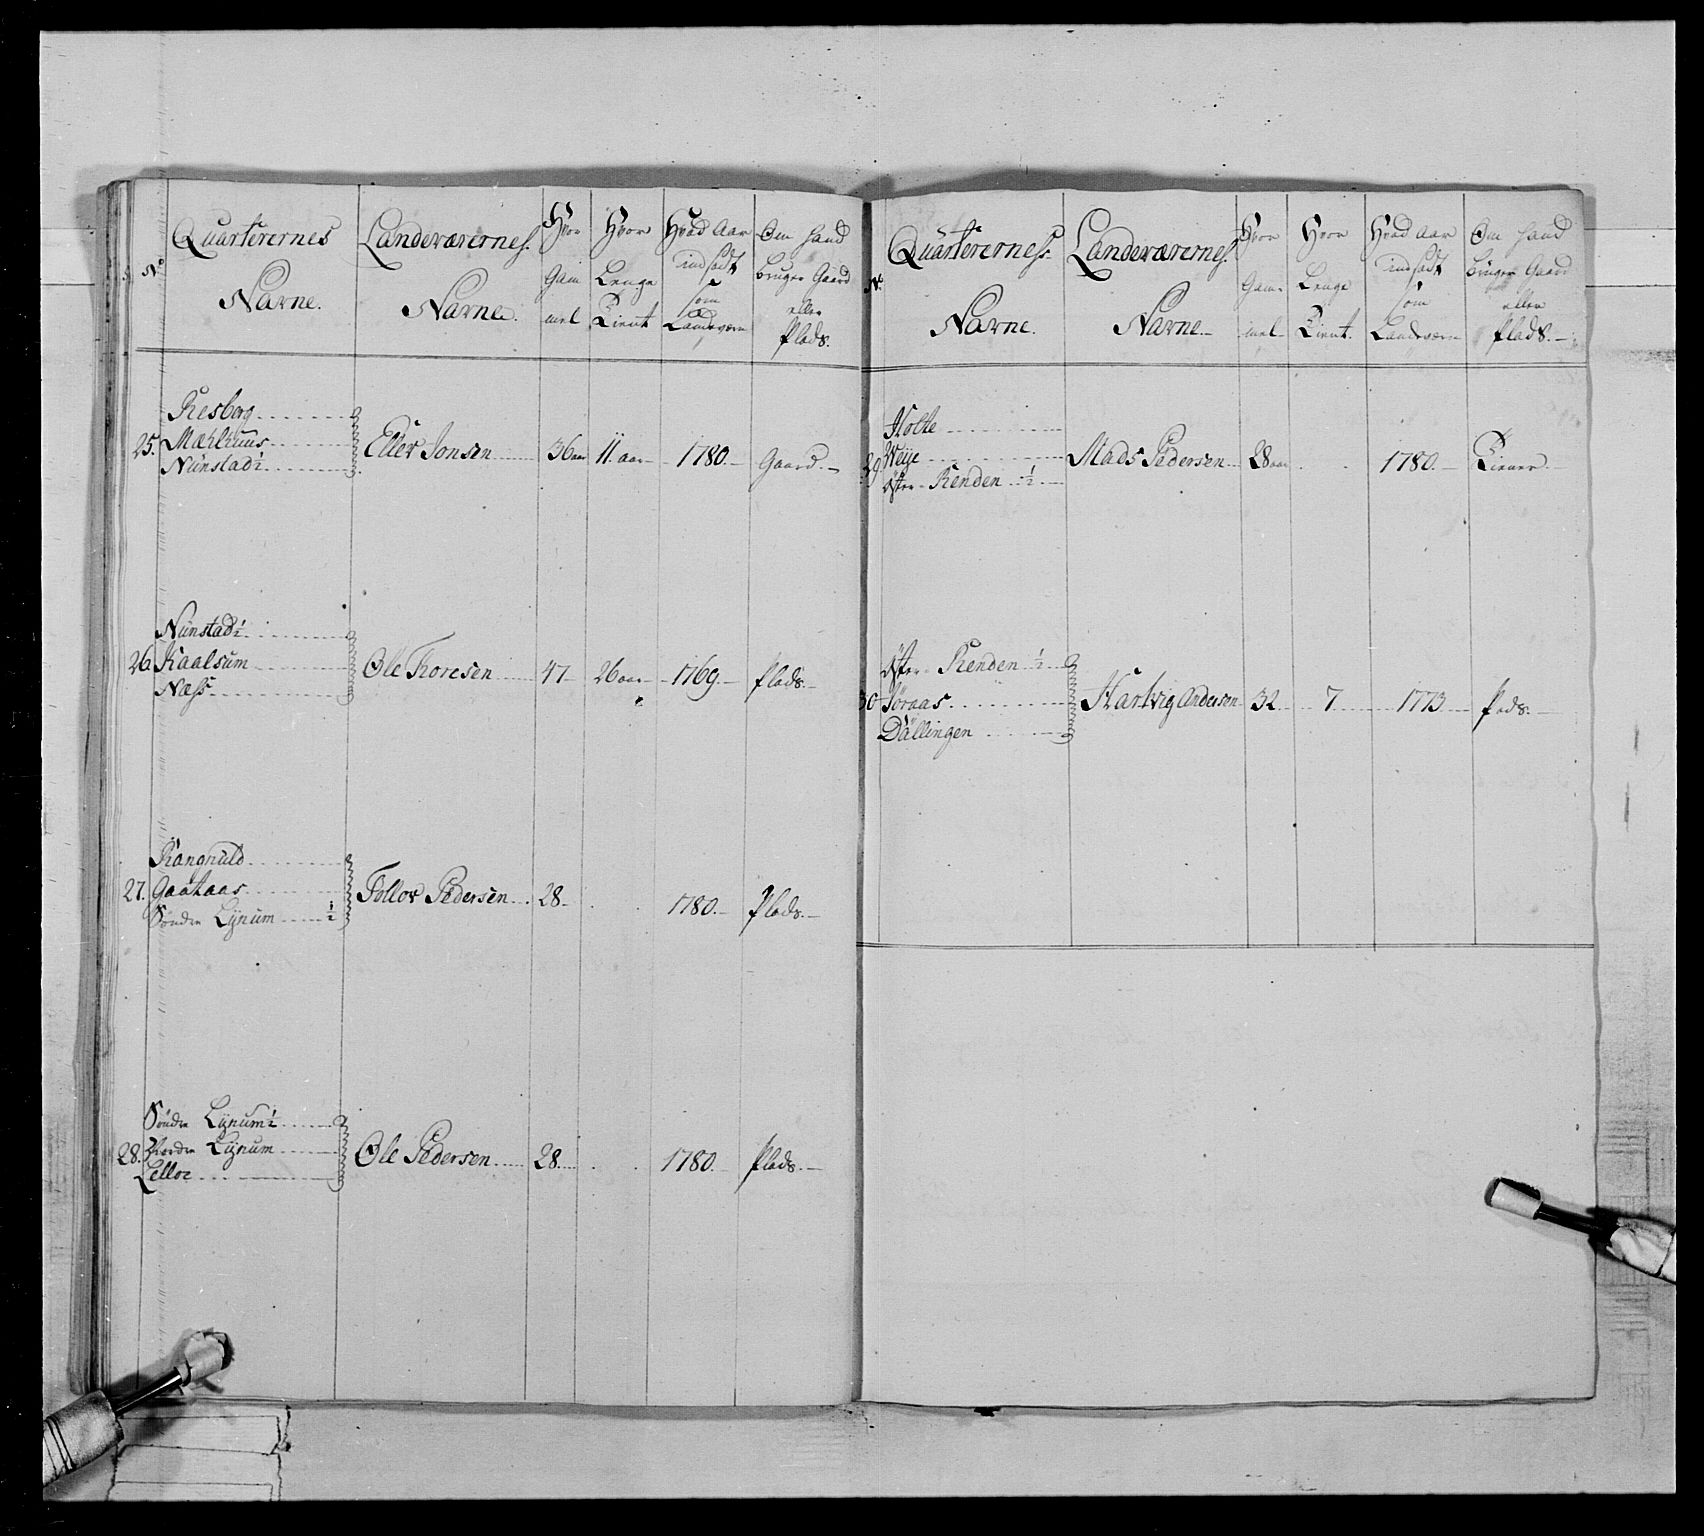 No
Quarterernes Nafne.
Landeværernes Nafne.
Hvor Gammel
Hvor Lenge Tient
Hvad Aar indsadt som Landeværn
Om hand bruger Gaard eller Plads.
25. Resberg
Mælhuus
Nunstad ½
Eller Jonsen 36 aar 11. aar 1780. Gaard.
26 Nunstad ½
Kaalsum
Næss
Ole Toresen 47 26 aar 1769. Plads.
27. Rangnuld
Gaataas
Søndre Lynum ½
Tollov Pedersen 28 1780. Plads.
28. Søndre Lynum ½
Nordre Lynum
Lelloe
Ole Pedersen 28. 1780. Plads.
No.
Quarterernes Nafne.
Landeværernes Nafne
Hvor Gammel
Hvor Lenge Tient.
Hvad Aar indsadt som Landeværn
Om hand bruger Gaard eller Plads.
29 Holte
Weje
Øster Renden ½
Mads Pedersen 28 aar 1780. Tiener.
30 Øster Renden ½
Søraas
Dållingen
Hartvig Andersen 32 7 1773 Pads.